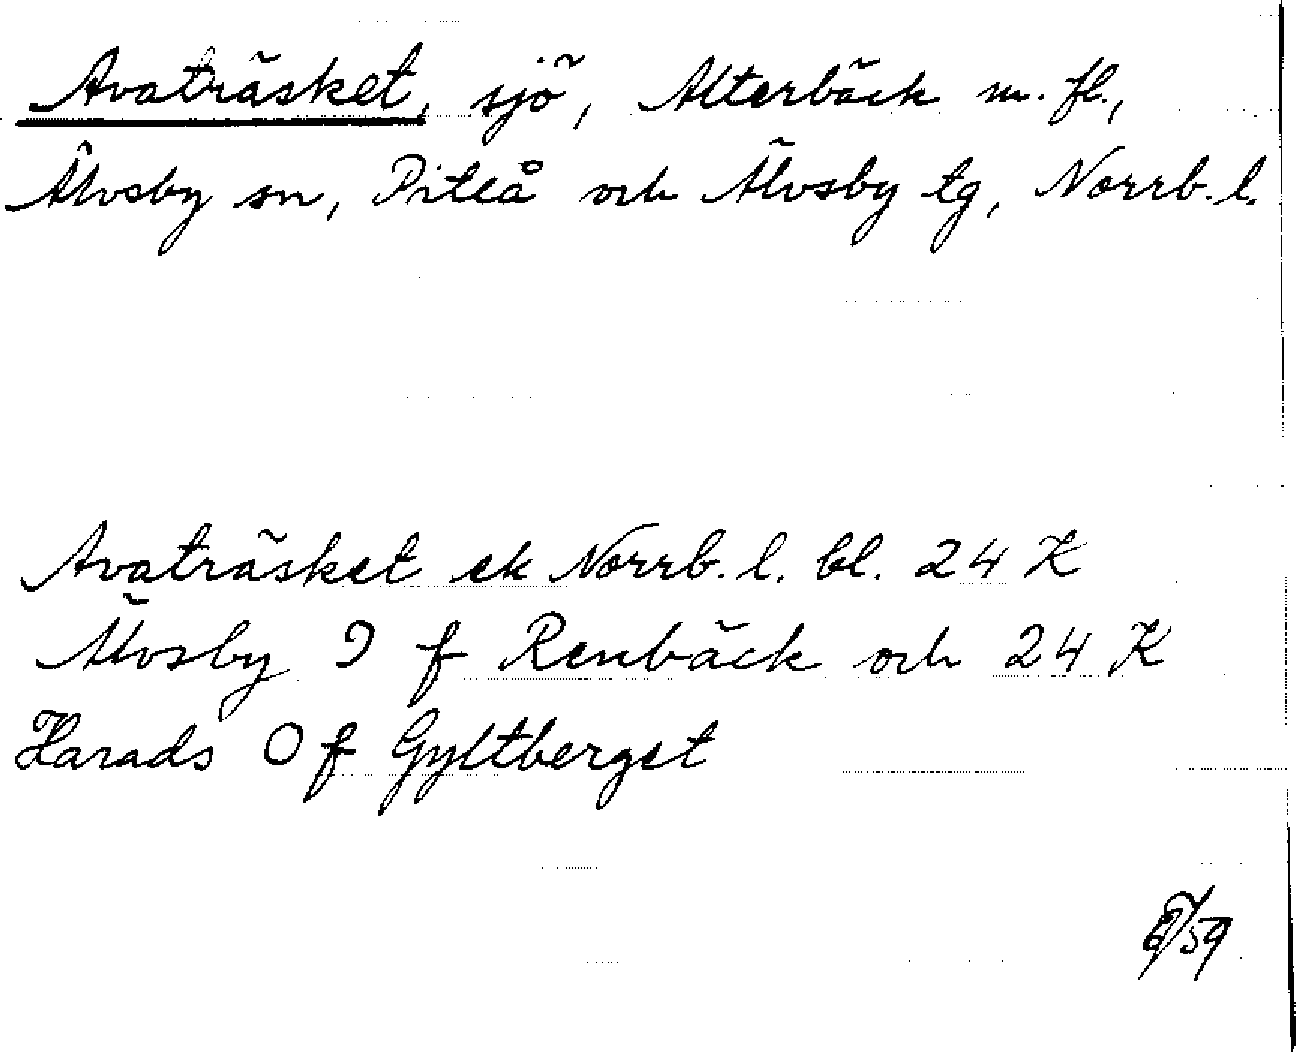 Avaträsket, sjö, Alterbäck m. fl.,
Älvsby sn, Piteå och Älvsby tg, Norrb. l.
Avaträsket ek Norrb. l. bl. 24 K
Älvsby J f Renbäck och 24 K
Harads O f Gyltberget